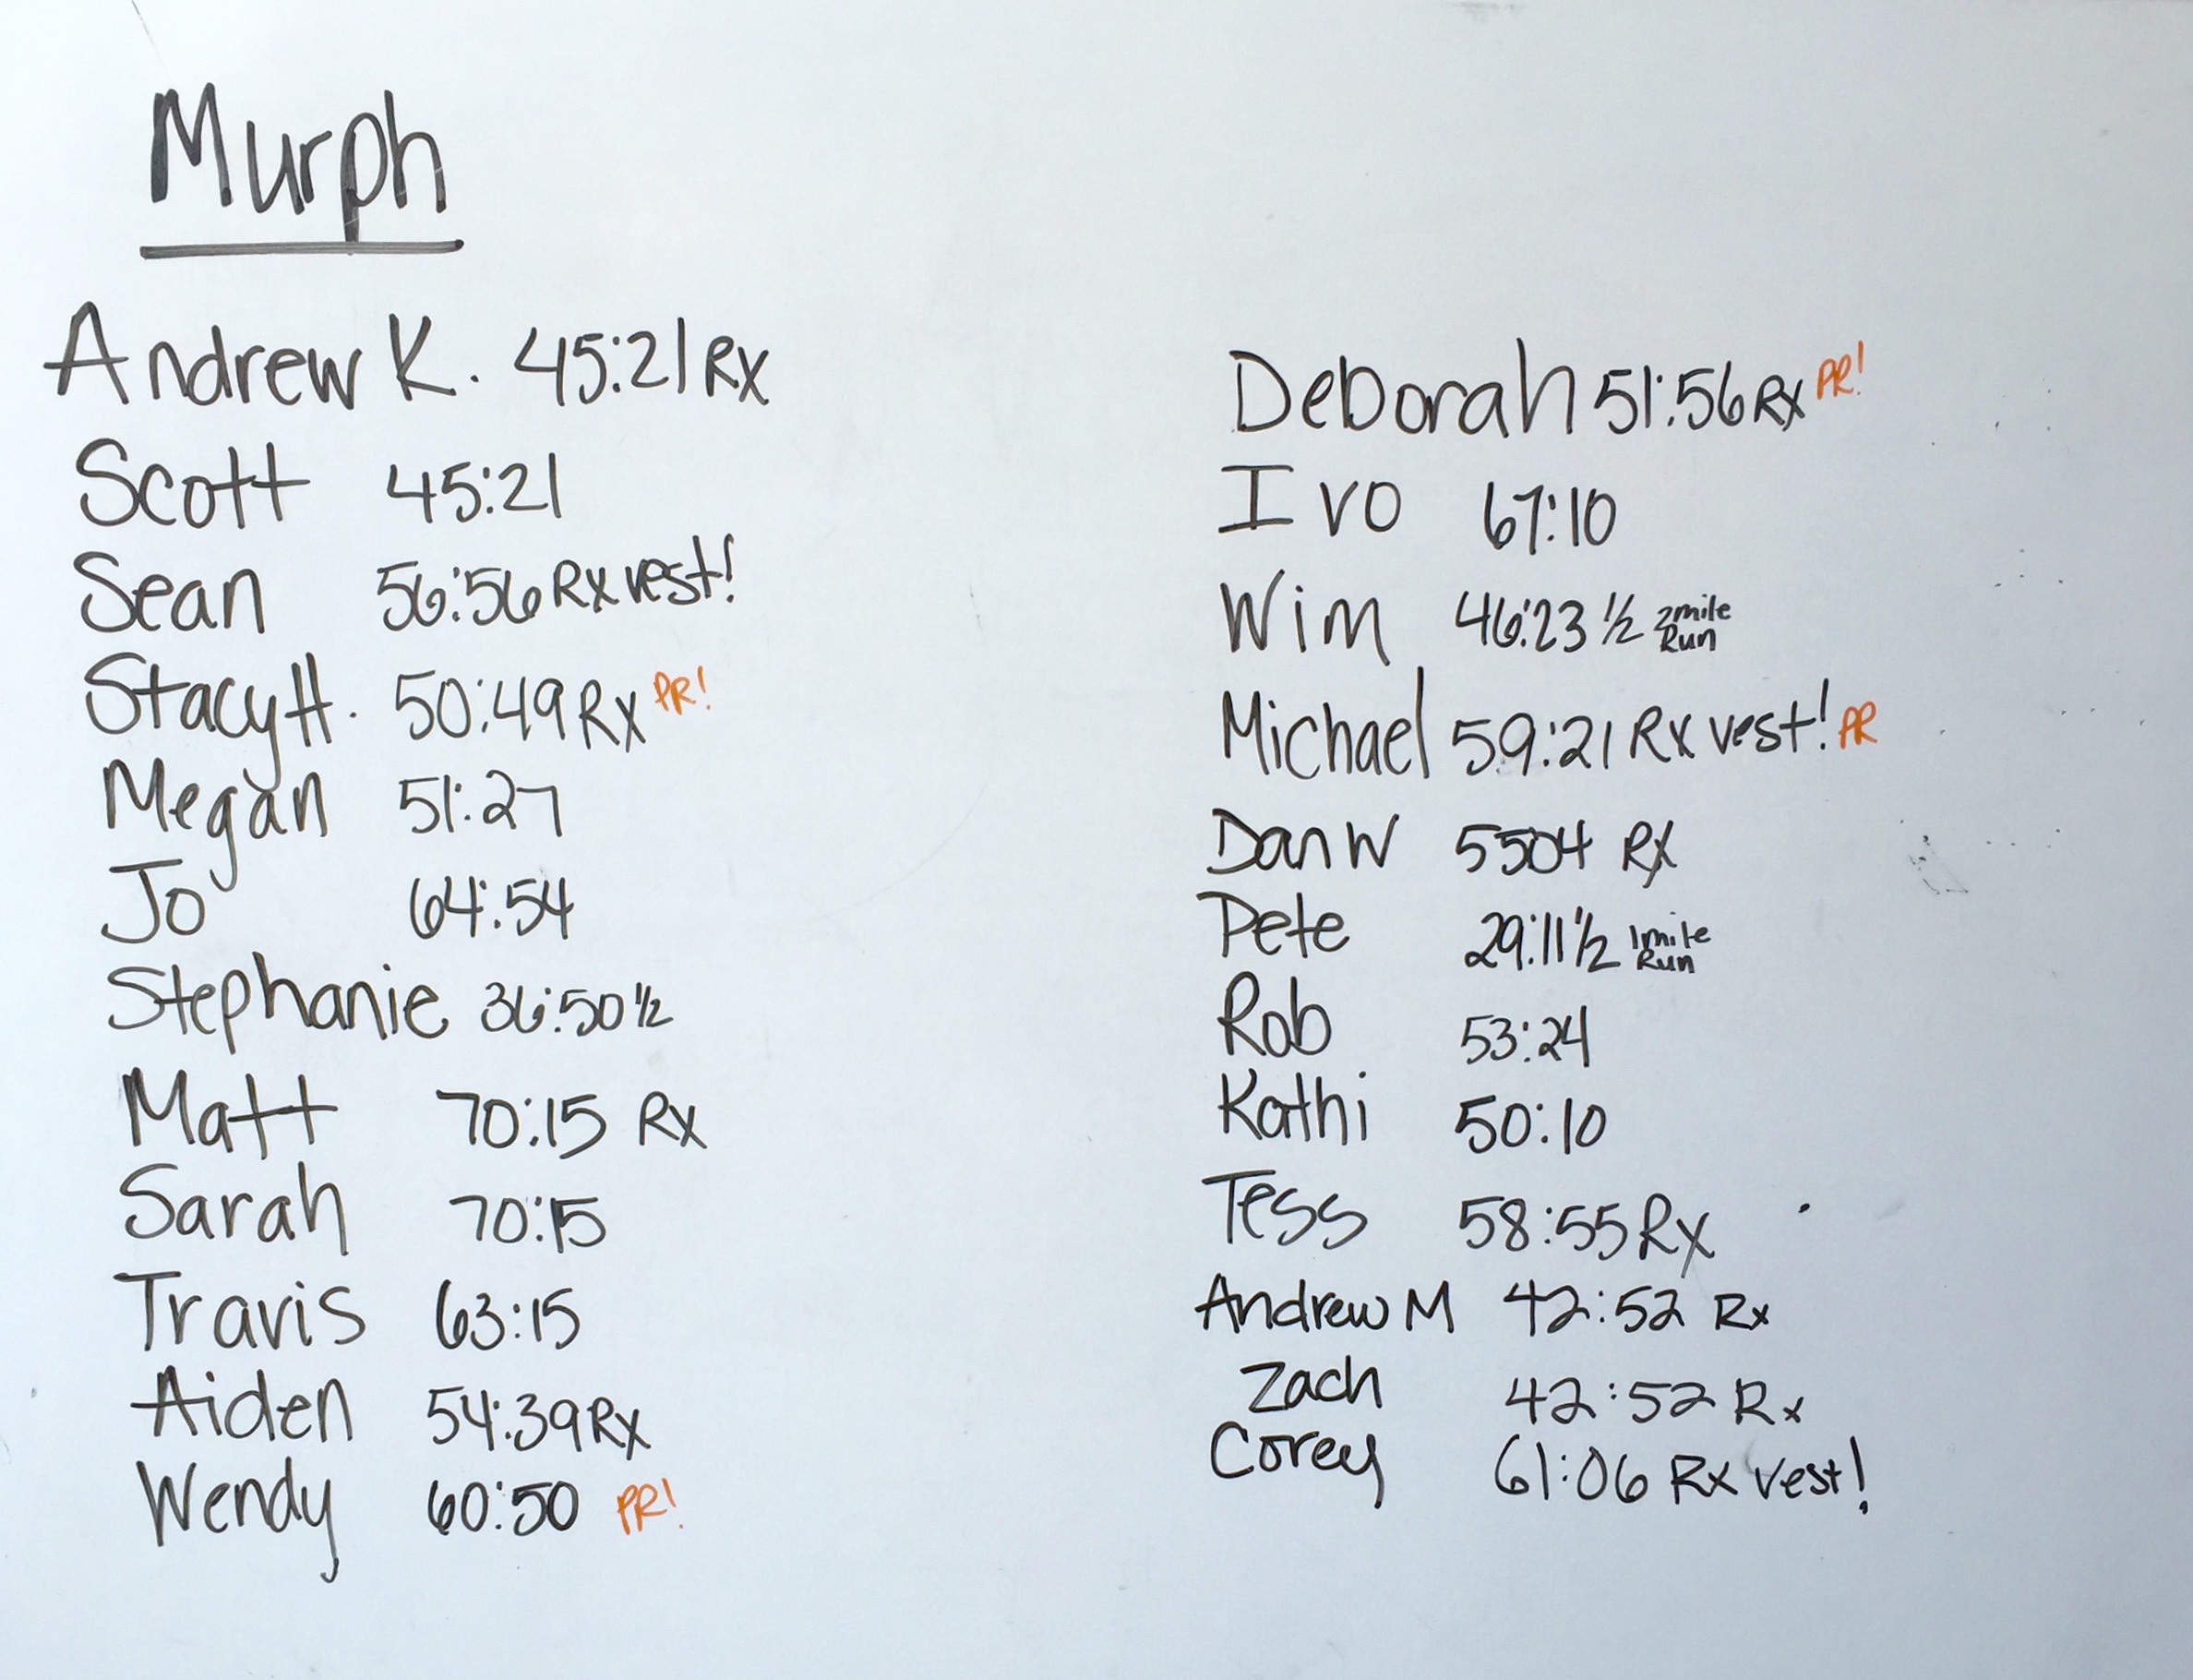 Murph
Andrew K. 45:21 Rx
Scott 45:21
Sean 56:56 Rx vest!
Stacy H. 50:49 Rx PR!
Megan 51:27
Jo 64:54
Stephanie 36:50 1/2
Matt 70:15 Rx
Sarah 70:15
Travis 63:15
Aiden 54:39 Rx
Wendy 60:50 PR!
Deborah 51:56 Rx PR!
Ivo 67:10
Wim 46:23 1/2 2mile
Run
Michael 59:21 Rx vest! PR
Dan W 5504 Rx
Pete 29:11 1/2 1mile
Run
Rob 53:24
Kathi 50:10
Tess 58:55 Rx
Andrew M 42:52 Rx
Zach 42:52 Rx
Corey 61:06 Rx vest!